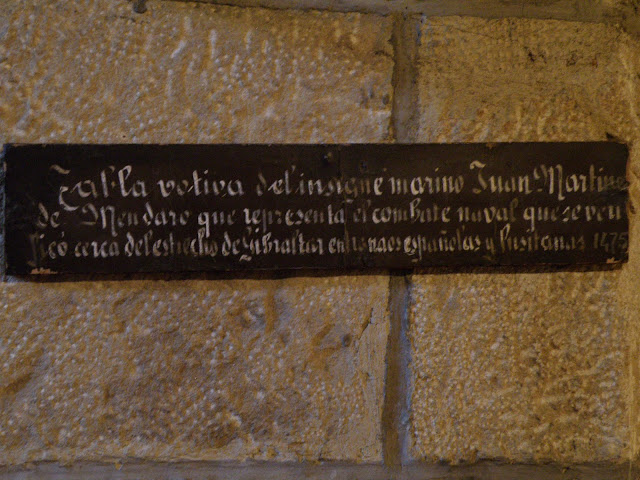 Tabla votiva del insigne marino Juan Martinez
de Mendaro que representa el combate naval que se veri
ficó cerca del estrecho de Gibraltar entre naos españolas y lusitanas 1475